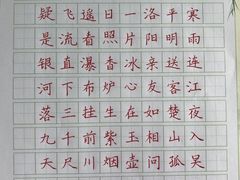 寒雨连江夜入吴
平明送客楚山孤
洛阳亲友如相问
一片冰心在玉壶
日照香炉生紫烟
遥看瀑布挂前川
飞流直下三千尺
疑是银河落九天